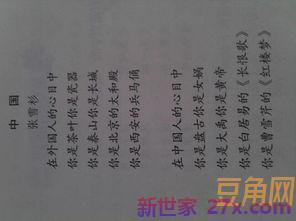 中国
张雪杉
在外国人的心目中
你是茶叶你是瓷器
你是泰山你是长城
你是北京的太和殿
你是西安的兵马俑
在中国人的心目中
你是盘古你是女娲
你是大禹你是黄帝
你是白居易的《长恨歌》
你是曹雪芹的《红楼梦》
豆角网
新世家 27x.com